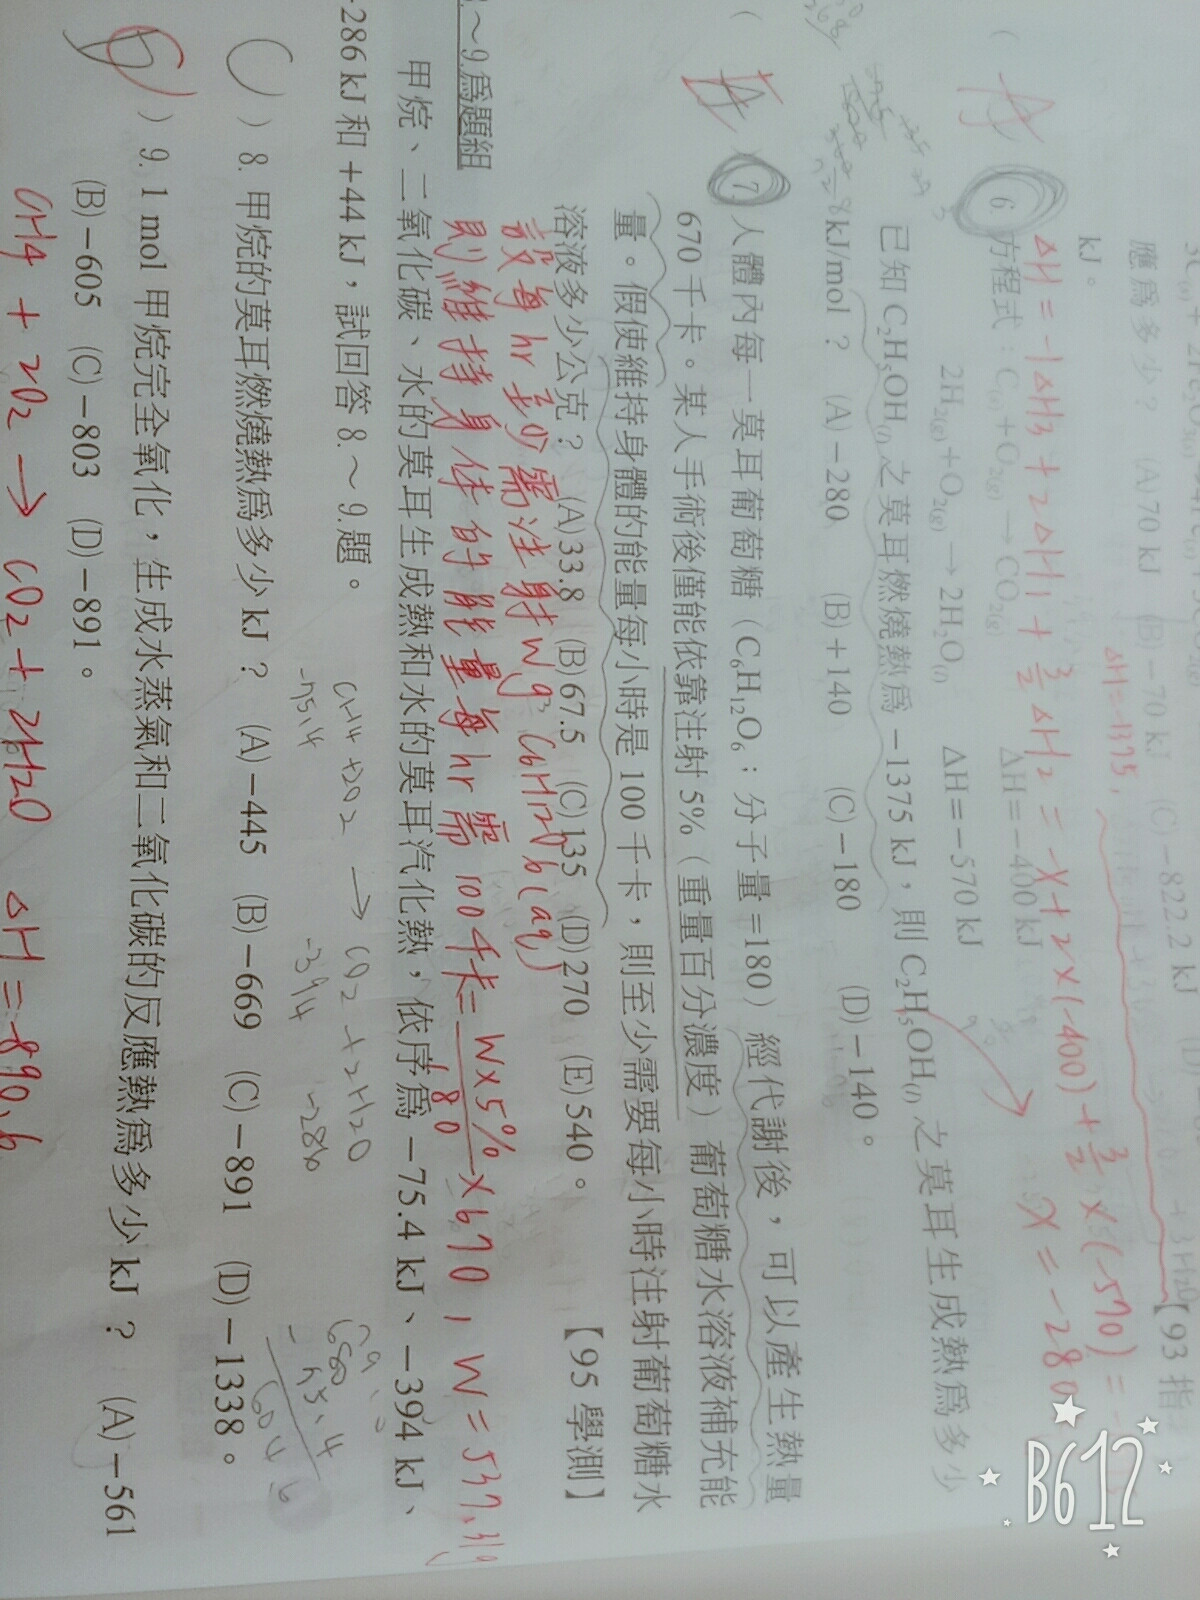 應為多少？ (A)70 kJ (B)－70 kJ (C)－822.2 kJ (D)
【93 指
kJ。
ΔH＝－1375，
ΔH = -1ΔH3 + 2ΔH1 + 3/2 ΔH2 = -X + 2×(-400) + 3/2 ×(-570) =
X = -280
6 方程式：C(s)＋O2(g)→CO2(g) ΔH＝－400 kJ
2H2(g)＋O2(g)→2H2O(l) ΔH＝－570 kJ
已知 C2H5OH(l) 之莫耳燃燒熱為－1375 kJ，則 C2H5OH(l) 之莫耳生成熱為多少
kJ/mol？ (A)－280 (B)＋140 (C)－180 (D)－140。
A 7. 人體內每一莫耳葡萄糖（C6H12O6；分子量＝180）經代謝後，可以產生熱量
670 千卡。某人手術後僅能依靠注射 5%（重量百分濃度）葡萄糖水溶液補充能
量。假使維持身體的能量每小時是 100 千卡，則至少需要每小時注射葡萄糖水
溶液多少公克？ (A)33.8 (B)67.5 (C)135 (D)270 (E)540。 【95 學測】
設每 hr 至少需注射 Wg C6H12O6(aq)
則維持身体的能量每 hr 需 100千卡 = W×5%/180 ×670，W = 537.31g
～9.為題組
甲烷、二氧化碳、水的莫耳生成熱和水的莫耳汽化熱，依序為－75.4 kJ、－394 kJ、
－286 kJ 和＋44 kJ，試回答 8.～9.題。
CH4 +2O2 → CO2 +2H2O
-75.4 -394 -286
( ) 8. 甲烷的莫耳燃燒熱為多少 kJ？ (A)－445 (B)－669 (C)－891 (D)－1338。
) 9. 1 mol 甲烷完全氧化，生成水蒸氣和二氧化碳的反應熱為多少 kJ？ (A)－561
(B)－605 (C)－803 (D)－891。
CH4 + 2O2 → CO2 + 2H2O ΔH = -890.6
B612